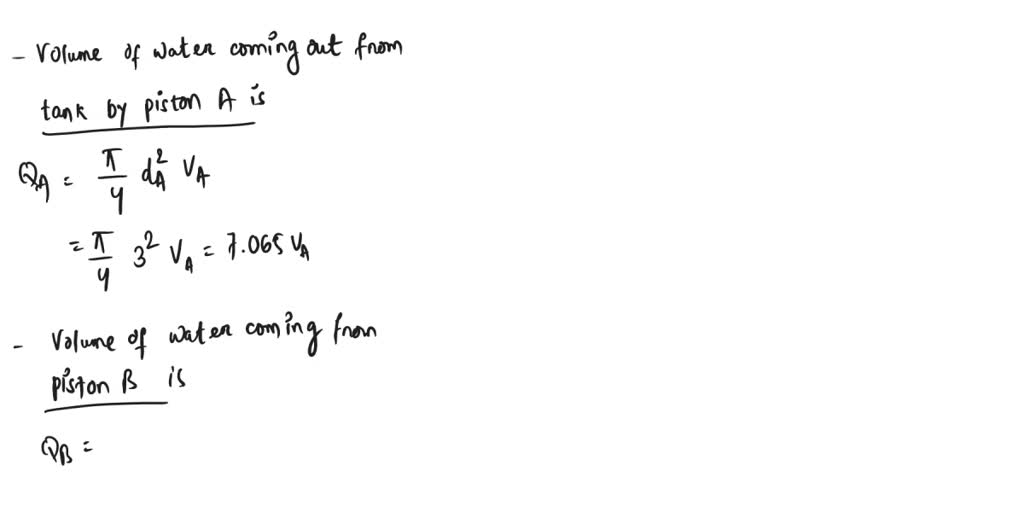 - Volume of water coming out from
tank by piston A is
Q_A = π/4 d_A^2 V_A
= π/4 3^2 V_A = 7.065 V_A
- Volume of water coming from
piston B is
Q_B =